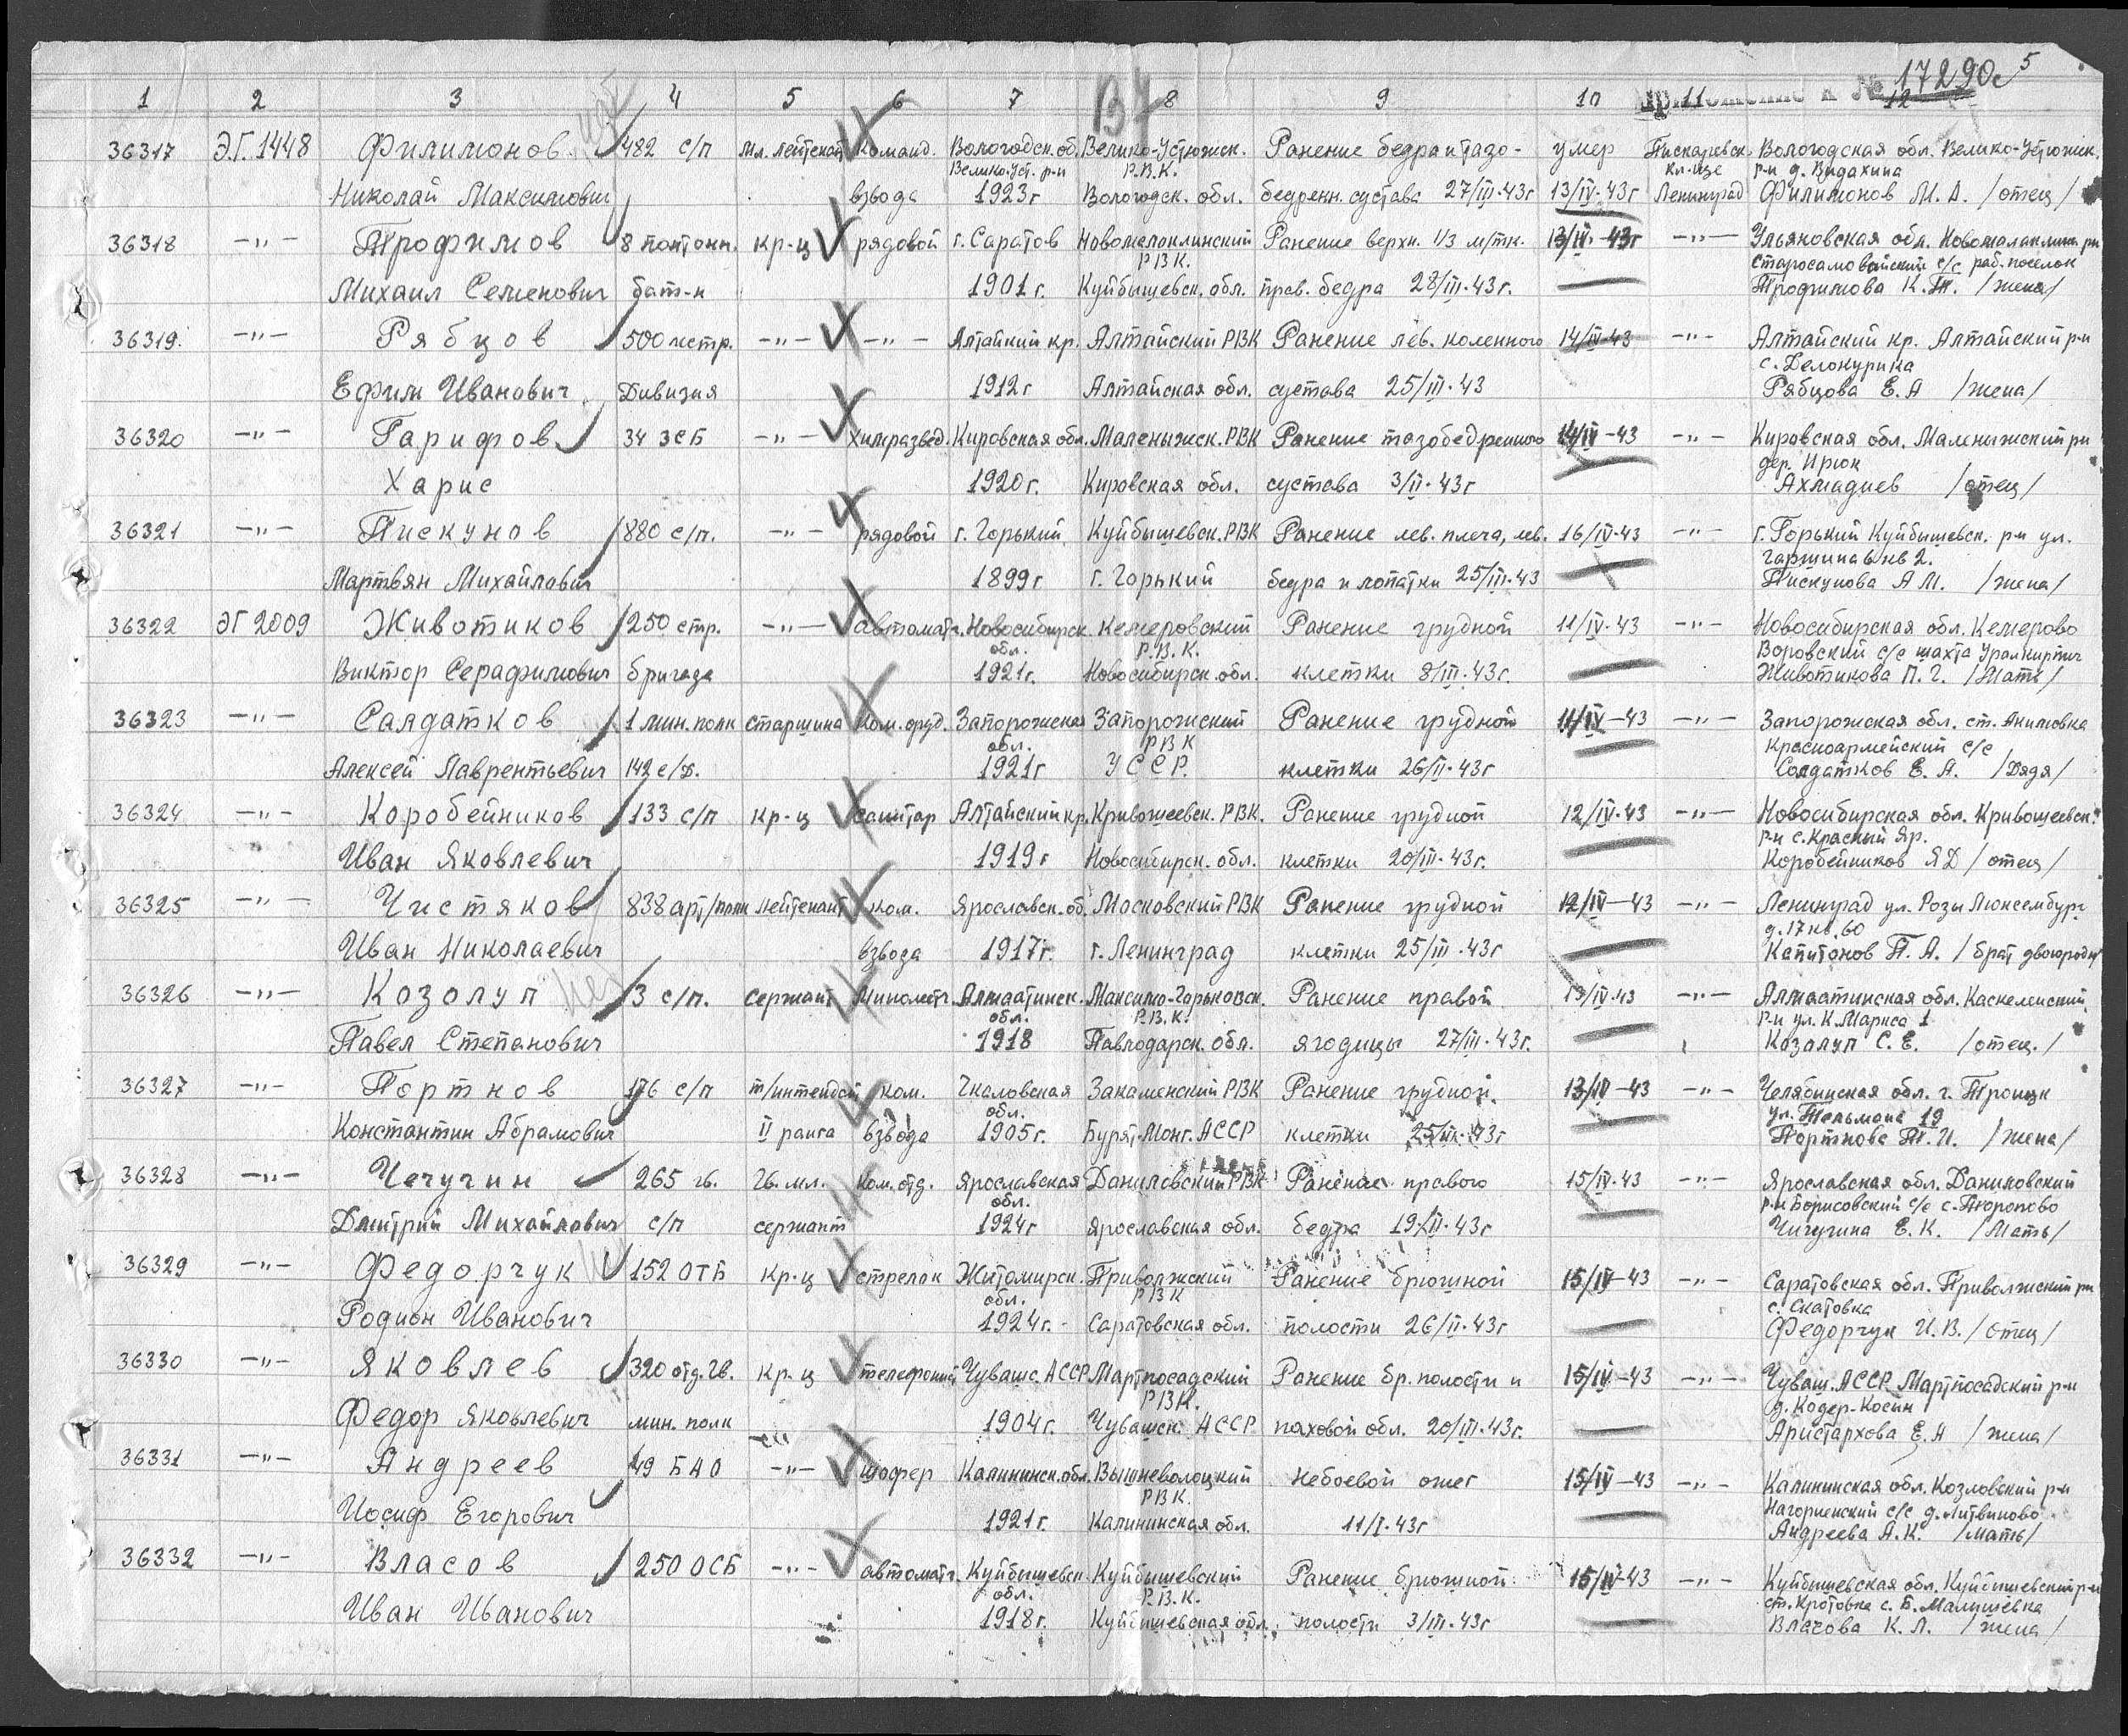 17290с 5
Приложение к №
1 2 3 4 5 6 7 8 9 10 11 12
36317 Э.Г. 1448 Филимонов 482 с/п мл. лейтенант Команд. Вологодск. об. Велико-Устюжск. Ранение бедра и тазо- умер Пискаревск. Вологодская обл. Велико-Устюжск.
Велико-Уст. р-н Р.В.К. кл-ще р-н д.
Николай Максимович взвода 1923г Вологодск. обл. бедренн. сустава 27/III-43г 13/IV-43г Ленинград Филимонов М. А. /отец/
36318 -"- Трофимов 8 понтонн. кр-ц рядовой г. Саратов Новомалоклинский Ранение верхн. 1/3 м/тк. 13/IV-43г -"- Ульяновская обл. Новомалаклинск. рн
РВК. с/с раб. поселок
Михаил Семенович бат-н 1901г. Куйбышевск. обл. прав. бедра 28/III-43г. Трофимова К. Т. /жена/
36319. -"- Рябцов 500 истр. -"- -"- Алтайкий кр. Алтайский РВК Ранение лев. коленного 14/IV-43 -"- Алтайский кр. Алтайский р-н
с. Белокуриха
Ефим Иванович Дивизия 1912г Алтайская обл. сустава 25/III-43 Рябцова Е. А /жена/
36320 -"- Гарифов 34 ЗСБ -"- Химразвед. Кировская обл. Малмыжск. РВК Ранение тазобедренного 14/IV-43 -"- Кировская обл. Малмыжский рн
дер. Ирюк
Харис 1920г. Кировская обл. сустава 3/II-43г Ахмадиев /отец/
36321 -"- Пискунов 880 с/п. -"- рядовой г. Горький Куйбышевск. РВК Ранение лев. плеча, лев. 16/IV-43 -"- г. Горький Куйбышевск. р-н ул.
Гаршина 2.
Мартьян Михайлович 1899г г. Горький бедра и лопатки 25/III-43 Пискунова А М. /жена/
36322 ЭГ 2009 Животиков 250 стр. -"- автоматч. Новосибирск. Кемеровский Ранение грудной 11/IV-43 -"- Новосибирская обл. Кемерово
обл. Р.В.К. с/с шахта
Виктор Серафимович бригада 1921г. Новосибирск. обл. клетки 8/III-43г. Животикова П. Г. /Мать/
36323 -"- Салдатков 1 мин. полк старшина Ком. оруд. Запорожская Запорожский Ранение грудной 11/IV-43 -"- Запорожская обл. ст. Акимовка
обл. РВК Красноармейский с/с
Алексей Лаврентьевич 142 с/д. 1921г УССР. клетки 26/II-43г Солдатков Е. А. /Дядя/
36324 -"- Коробейников 133 с/п кр-ц санитар Алтайский кр. Кривошеевск. РВК. Ранение грудной 12/IV-43 -"- Новосибирская обл. Кривошеевск.
р-н с. Красный Яр.
Иван Яковлевич 1919г Новосибирск. обл. клетки 20/III-43г. Коробейников Я Д /отец/
36325 -"- Чистяков 838 арт/полк лейтенант ком. Ярославск. об. Московский РВК Ранение грудной 12/IV-43 -"- Ленинград ул. Розы Люксембург
д. 17 кв. 60
Иван Николаевич взвода 1917г. г. Ленинград клетки 25/III-43г Капитонов П. А. /брат двоюродн/
36326 -"- Козолуп 3 с/п. сержант Минометч. Алмаатинск. Максимо-Горьковск. Ранение правой 13/IV-43 -"- Алмаатинская обл. Каскеленский
обл. Р.В.К. р-н ул. К. Маркса 1
Павел Степанович 1918 Павлодарск. обл. ягодицы 27/III-43г. Козалуп С. Е. /отец./
36327 -"- Портнов 176 с/п т/интендант ком. Чкаловская Закаменский РВК Ранение грудной. 13/IV-43 -"- Челябинская обл. г. Троицк
обл. ул. Тельмана 19
Константин Абрамович II ранга взвода 1905г. Бурят-Монг. АССР клетки 25/III-43г Портнова Т. И. /жена/
36328 -"- Чечугин 265 гв. Гв. мл. ком. отд. Ярославская Даниловский РВК Ранение правого 15/IV-43 -"- Ярославская обл. Даниловский
обл. р-н Борисовский с/с с.
Дмитрий Михайлович с/п сержант 1924г Ярославская обл. бедра 19/II-43г Чичугина Е. К. /Мать/
36329 -"- Федорчук 152 ОТБ кр-ц стрелок Житомирск. Приволжский Ранение брюшной 15/IV-43 -"- Саратовская обл. Приволжский рн
обл. РВК с. Скатовка
Родион Иванович 1924г. Саратовская обл. полости 26/II-43г Федорчук И. В. /отец/
36330 -"- Яковлев 320 отд. Гв. кр-ц телефонист Чувашс. АССР Мартпосадский Ранение бр. полости и 15/IV-43 -"- Чуваш. АССР Мартпосадский р-н
РВК. д. Кодер-Косин
Федор Яковлевич мин. полк 1904г. Чувашск. АССР паховой обл. 20/III-43г. Аристархова Е. А /жена/
36331 -"- Андреев 49 БАО -"- шофер Калининск. обл. Вышневолоцкий Небоевой ожег 15/IV-43 -"- Калининская обл. Козловский р-н
РВК. с/с д. Литвиново
Иосиф Егорович 1921г. Калининская обл. 11/I-43г Андреева А. К. /мать/
36332 -"- Власов 250 ОСБ -"- автоматч. Куйбышевск. Куйбышевский Ранение брюшной 15/IV-43 -"- Куйбышевская обл. Куйбышевский р-н
обл. Р.В.К. ст. Кротовка с. Б. Малышевка
Иван Иванович 1918г. Куйбышевская обл. полости 3/III-43г Власова К. Л. /жена/